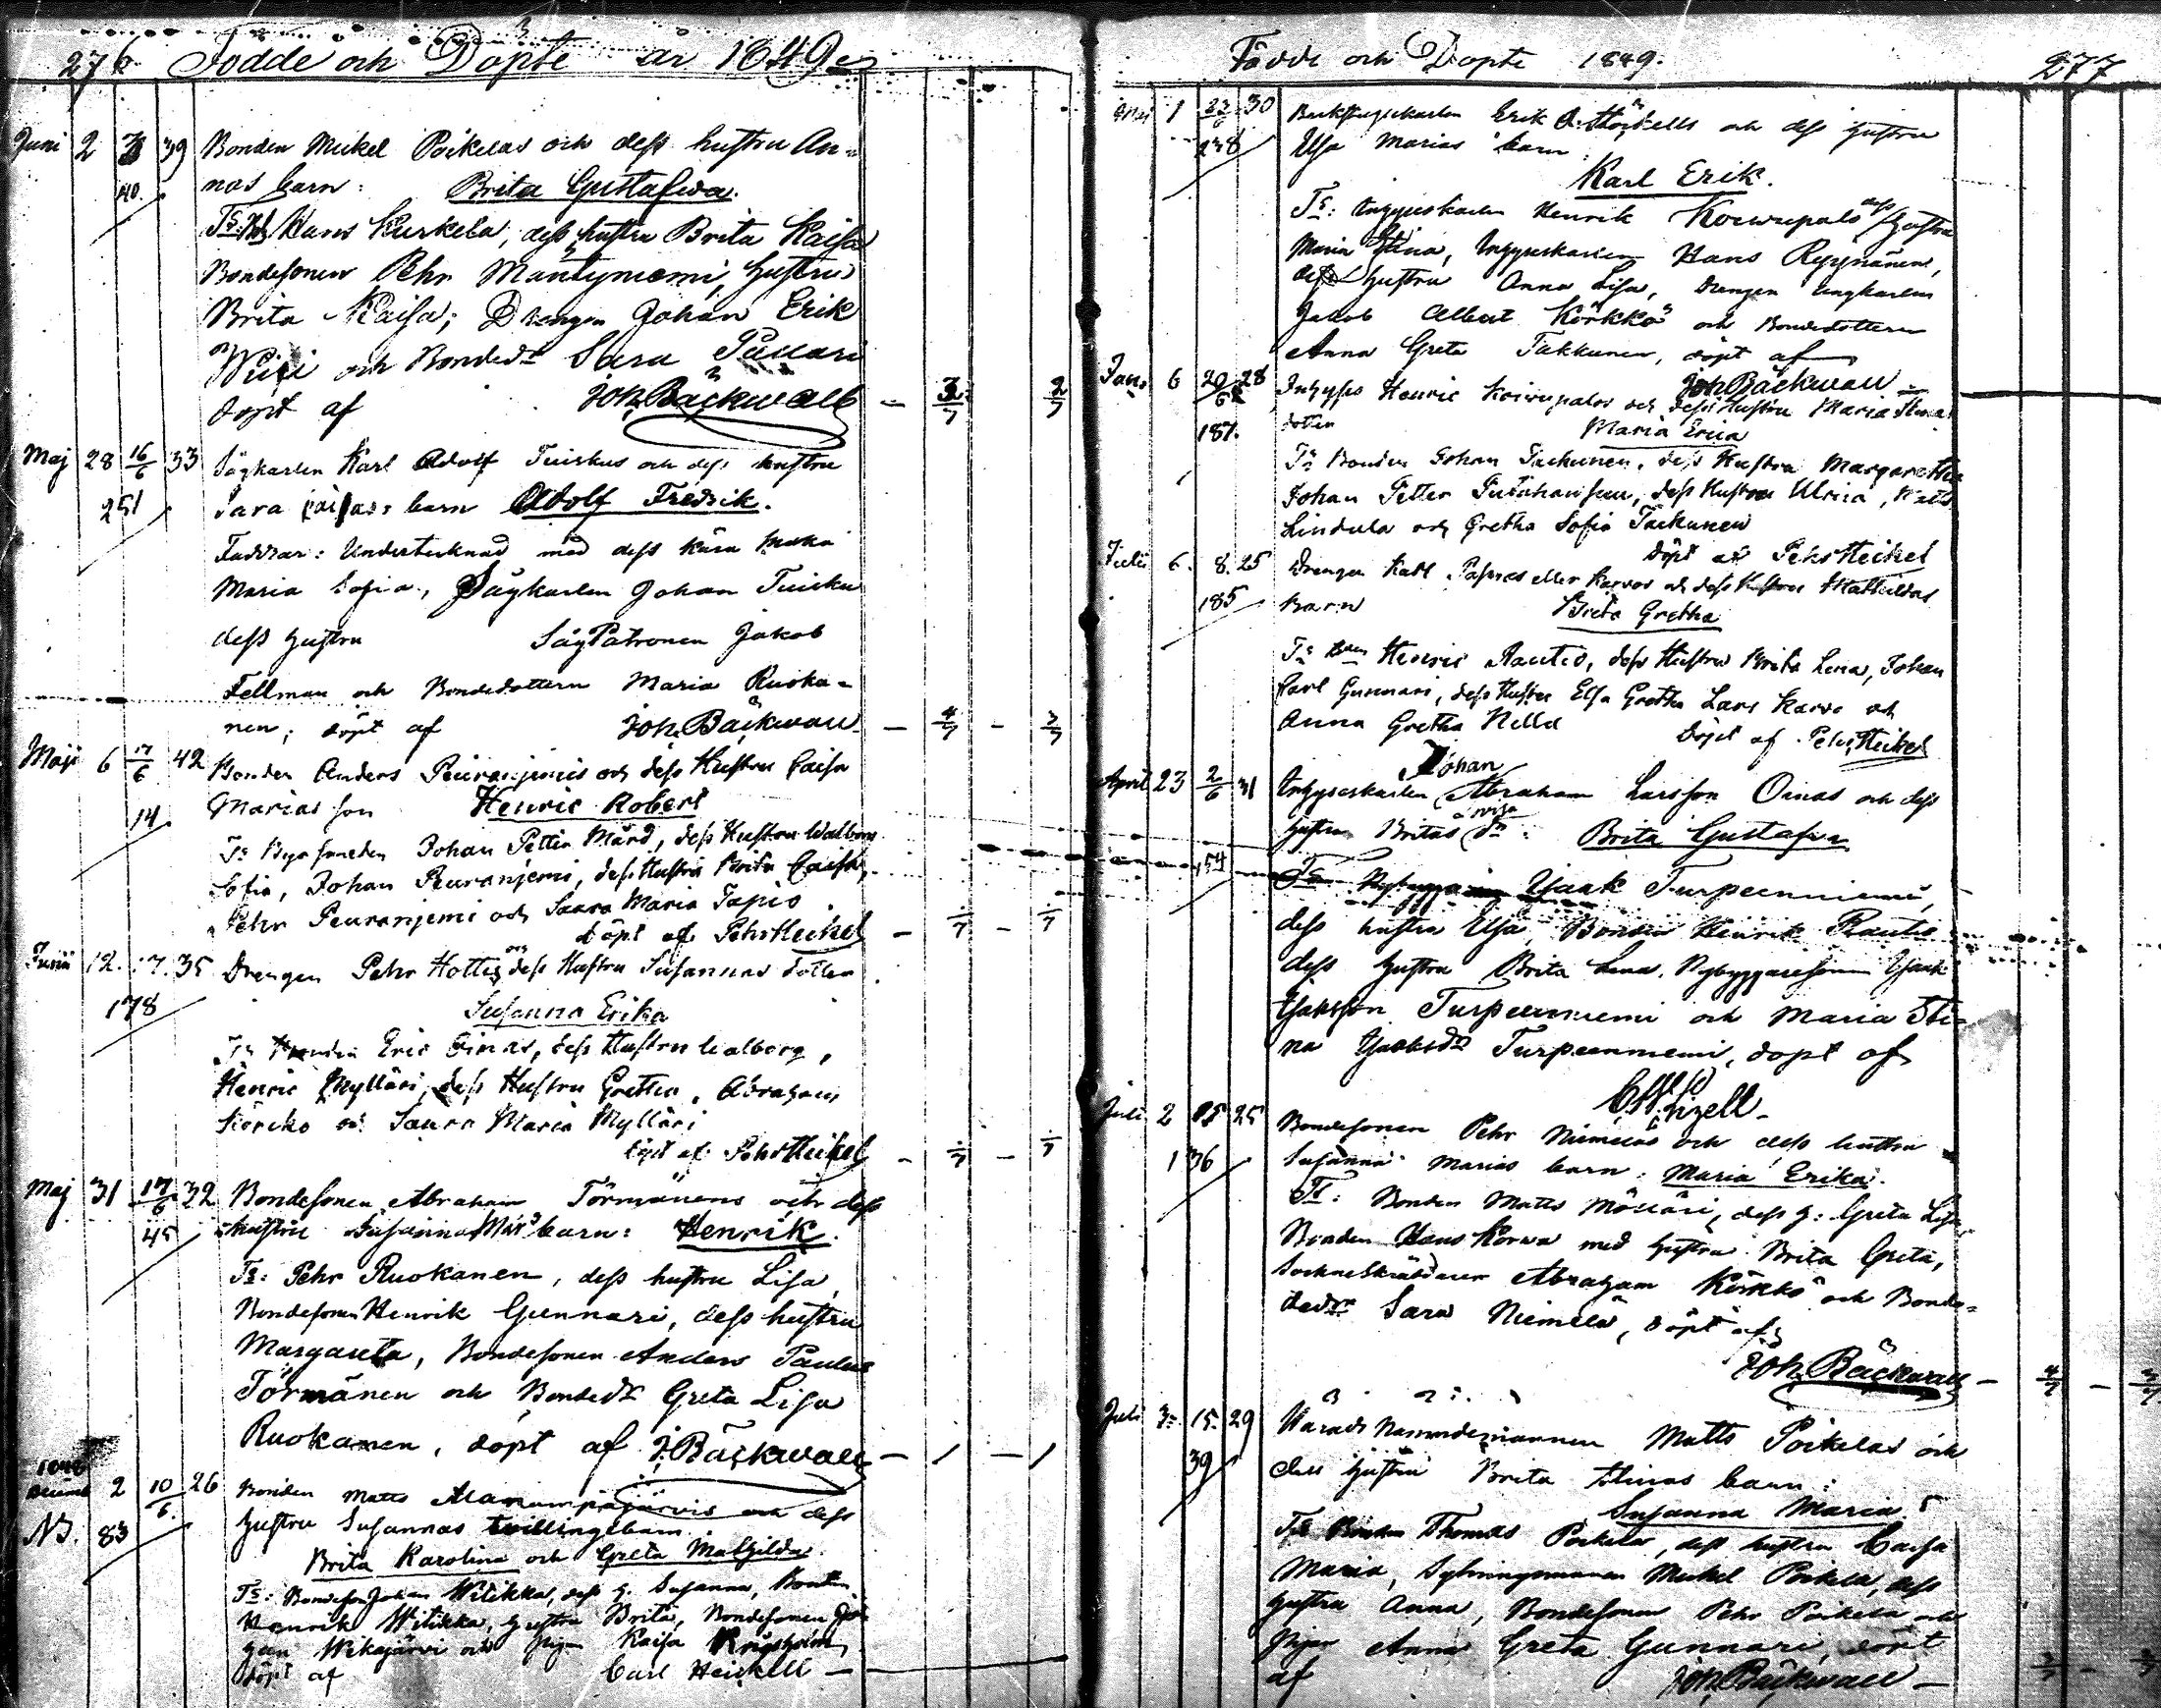 276 Födde och Döpte år 1849
Juni 2 39 Bonden Mickel Poikelas och dess hustru An=
40. nas barn: Brita Gustafwa.
Ts: Hans Kurkela, dess hustru Brita Kaisa
Bondesonen Pehr Mäntyniemi, hustru
Brita Kaisa; Drengen Johan Erik
och Bondedr Sara
döpt af Joh. Bäckwall – 3/7 2/7
Maj 28 16/6 33 Sågkarlen Karl Adolf Tuiskus och dess hustru
251 Sara Caisas barn Adolf Fredrik.
Faddrar: Undertecknad med dess kära maka
Maria Sofia, Sågkarlen Johan Tuisku
dess hustru SågPatronen Jakob
Fellman och Bondedottern Maria Ruoka=
nen; döpt af Joh. Bäckwall – 4/7 – 3/7
Maji 6 17/6 42 Bonden Anders Peuraniemis och dess Hustru Caisa
14. Marias son Henric Robert
Ts Byasmeden Johan Petter Mård, dess Hustru Walborg
Sofia, Johan Peuranjemi, dess Hustru Brita Caisa,
Pehr Peuranjemi och Saara Maria Tapio
döpt af Pehr Heikel –
Junii 12. 17. 35 Drengen Pehr Hottis och dess Hustru Susannas dotter
178 Susanna Erika
Ts Bonden Eric Oinas, dess Hustru Walborg,
Henric Mylläri, dess Hustru Gretha, Abraham
Körckö och Saara Maria Mylläri
döpt af Pehr Heikel –
Maj 31 17/6 32 Bondesonen Abraham Törmänens och dess
45 hustru Susanna Mar. barn: Henrik.
Ts: Pehr Ruokanen, dess hustru Lisa
Bondesonen Henrik Gunnari, dess hustru
Margareta, Bondesonen Anders Paulus
Törmänen och Bondedr Greta Lisa
Ruokanen, döpt af J. Bäckwall – 1 – 1
1848
Decemb 2 10/6. 26 Bonden Matts Alanampajärvis och dess
N3. 83 hustru Susannas tvillingebarn
Brita Karolina och Greta Mathilda.
Ts: Bondeson Johan Witikka, dess h. Susanna, Bonden
Henrik Witikka, hustru Brita, Bondesonen Jo=
han Wikajärvi och pigan Kaisa
döpt af Carl Heickell –
Födde och Döpte 1849. 277
Maj 1 30 Backstugukarlen Erik A. Hörkells och dess hustru
238 Ulsa Marias barn:
Karl Erik.
Ts: Inhyseskarlen Henrik Koivupalo dess hustru
Maria Stina, Inhyseskarlen Hans Ryynänen,
dess hustru Anna Lisa, Drengen ungkarlen
Jacob Albert Körkkö och Bondedottern
Anna Greta Takkunen, döpt af
Joh Bäckwall –
Jan. 6 28 Inhyses Henric Koivupalos och dess Hustru Maria Stinas
187. dotter Maria Erica
Ts Bonden Johan Tackunen, dess Hustru Margaretha
Johan Petter, dess Hustru Ulrica, Matts
Lindula och Gretha Sofia Tackunen
döpt af Pehr Heikel
Julii 6. 8. 25 Drengen Karl eller Karvos och dess Hustru Mathildas
185 barn Greta Gretha
Ts Bon Henric Rautio, dess Hustru Brita Lena, Johan
Carl Gunnari, dess Hustru Elsa Gretha Lars Karvo och
Anna Gretha Nella Döpt af Pehr Heikel
Johan
April 23 2/6 31 Inhyseskarlen Abraham Larsson Oinas och dess
hustru Britas dr: Brita Gustafva
54 Ts Isaak Turpeenniemi,
dess hustru Ulsa, Bonden Henrik Rautio
dess hustru Brita Lena, Nybyggaresonen Isaak
Isaksson Turpeenniemi och Maria Sti=
na Isaksdr Turpeenniemi, döpt af
Lizell –
Juli 2 15 25 Bondesonen Pehr Niemeläs och dess hustru
136 Susanna Marias barn: Maria Erika.
Ts: Bonden Matts Möllari, dess h: Greta Lisa,
Bonden Hans Korwa med hustru Brita Greta,
Sockneskräddaren Abraham Körkkö och Bonde=
dottr Sara Niemelä, döpt af
Joh. Bäckwall – 4/7 – 3/7
Juli 3. 15. 29 Härads Nämndemannen Matts Poikelas och
39 dess hustru Brita Stinas barn:
Susanna Maria.
Ts Bonden Thomas Poikela, dess hustru Caisa
Maria, Mickel Poikela, dess
hustru Anna, Bondesonen Pehr Poikela och
pigan Anna Greta Gunnari, döpt
af Joh. Bäckwall –